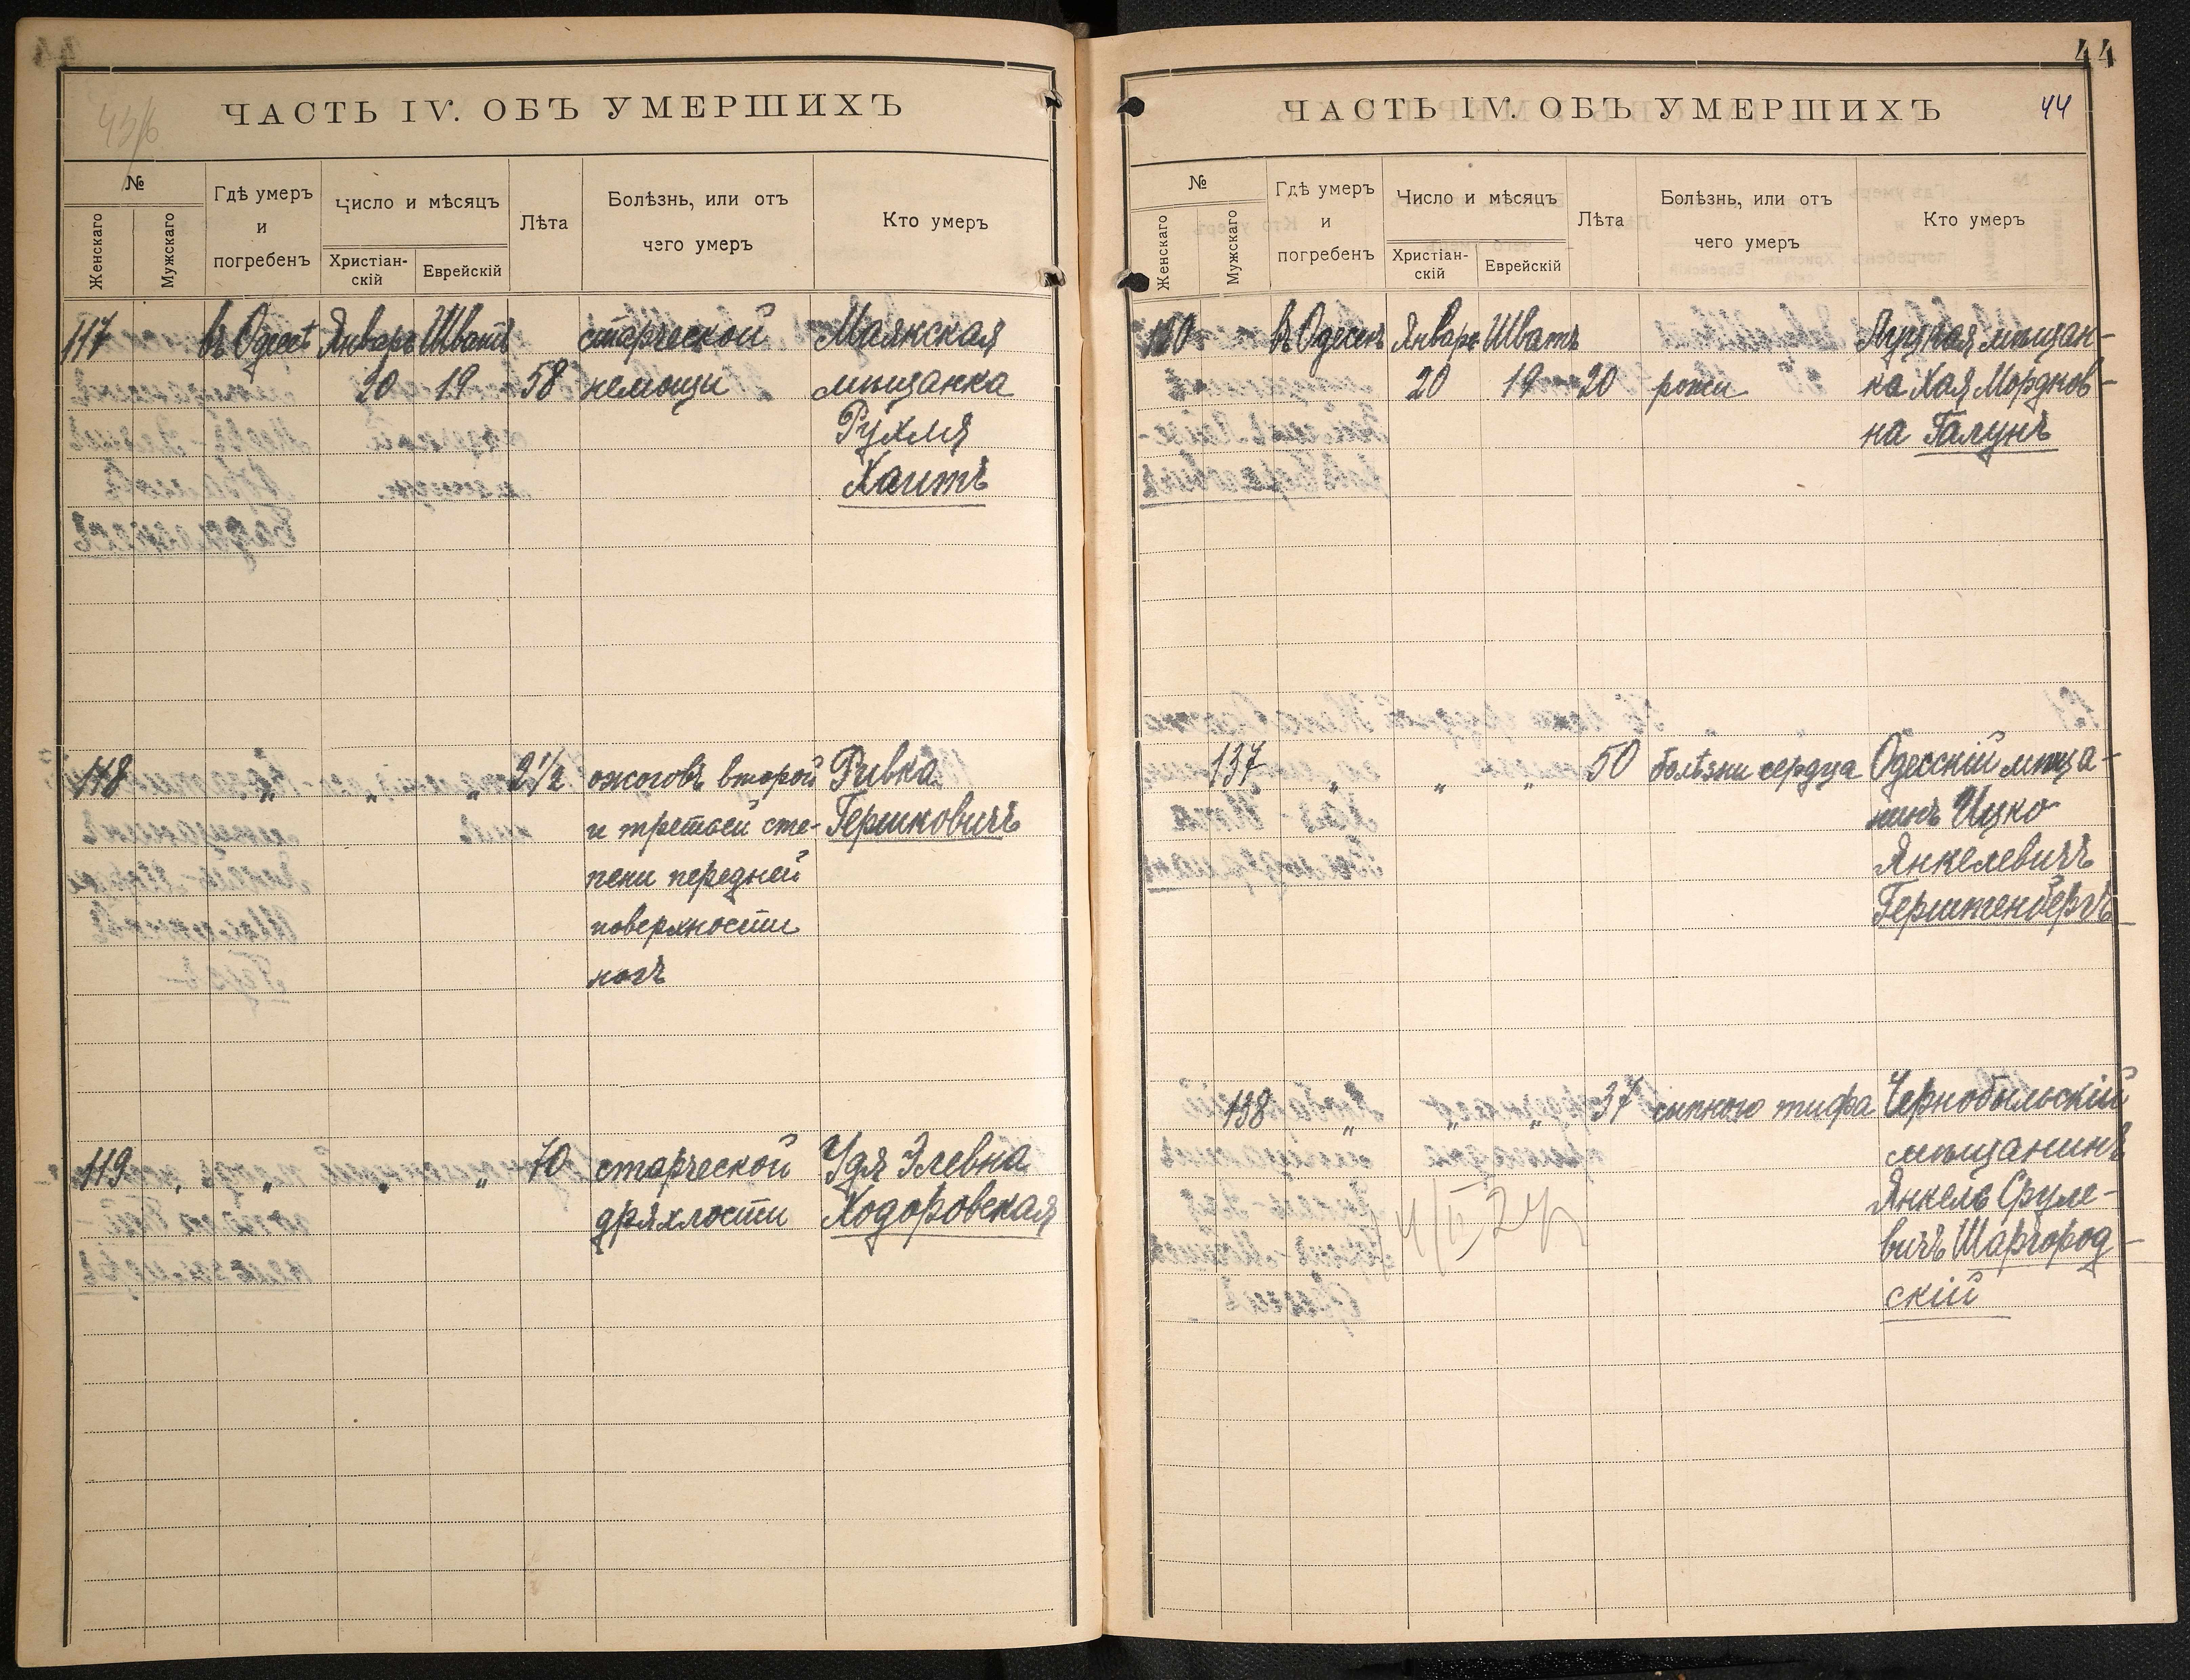 ЧАСТЬ IV. ОБЪ УМЕРШИХЪ
№
Женскаго
Мужскаго
Гдѣ умеръ
и
погребенъ
Число и мѣсяцъ
Христіан-
скій
Еврейскій
Лѣта
Болѣзнь, или отъ
чего умеръ
Кто умеръ
117 въ Одессѣ Январь Шватъ старческой Маякская
20 19 58 немощи мѣщанка
Рухля
Хаитъ
118 „ „ „ 2 1/2 ожоговъ второй Ривка
и третьей сте- Гершковичъ
пени передней
поверхности
ногъ
119 „ „ „ „ 70 старческой Удя Элевна
дряхлости Ходоровская
44
ЧАСТЬ IV. ОБЪ УМЕРШИХЪ 44
№
Женскаго
Мужскаго
Гдѣ умеръ
и
погребенъ
Число и мѣсяцъ
Христіан-
скій
Еврейскій
Лѣта
Болѣзнь, или отъ
чего умеръ
Кто умеръ
120 въ Одессѣ Январь Шватъ Луцкая мѣщан-
20 19 20 рожи ка Хая Мордков-
на Галунъ
137 „ „ „ 50 болѣзни сердца Одесскій мѣща-
нинъ Ицко
Янкелевичъ
Герштенбергъ
138 „ „ „ 37 сыпного тифа Чернобыльскій
мѣщанинъ
Янкель Сруле-
вичъ Шаргород-
скій